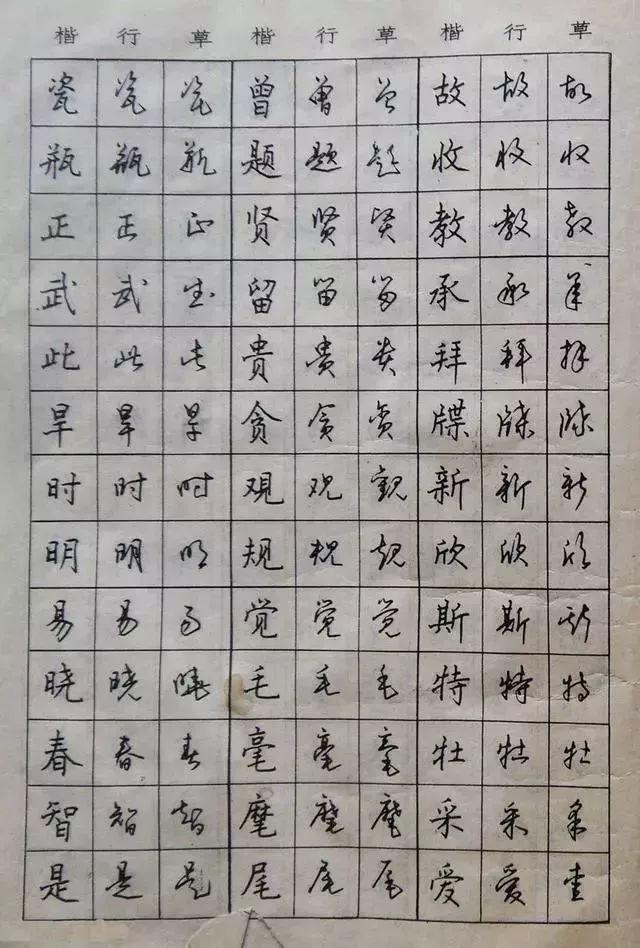 楷 行 草 楷 行 草 楷 行 草
瓷 瓷 瓷 曾 曾 曾 故 故 故
瓶 瓶 瓶 题 题 题 收 收 收
正 正 正 贤 贤 贤 教 教 教
武 武 武 留 留 留 承 承 承
此 此 此 貴 貴 貴 拜 拜 拜
旱 旱 旱 贪 贪 贪 牒 牒 牒
时 时 时 观 观 観 新 新 新
明 明 明 规 规 规 欣 欣 欣
易 易 易 觉 觉 觉 斯 斯 斯
晓 晓 晓 毛 毛 毛 特 特 特
春 春 春 毫 毫 毫 牡 牡 牡
智 智 智 麾 麾 麾 采 采 采
是 是 是 尾 尾 尾 爱 爱 爱